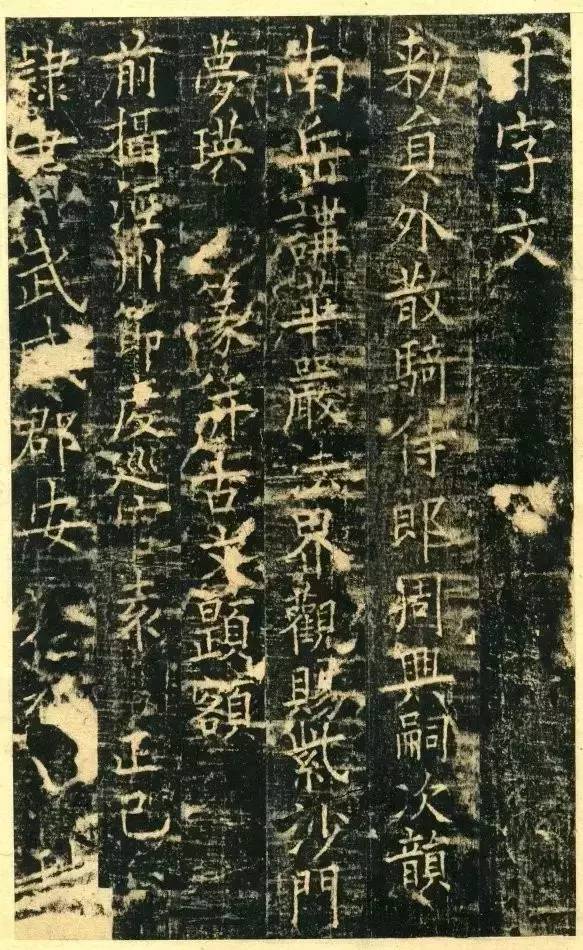 千字文
勑貟外散騎侍郎周興嗣次韻
南岳講華嚴法界觀賜紫沙門
夢瑛 篆并古文題額
前攝涇州節度巡官袁正己
隸書 武威郡安